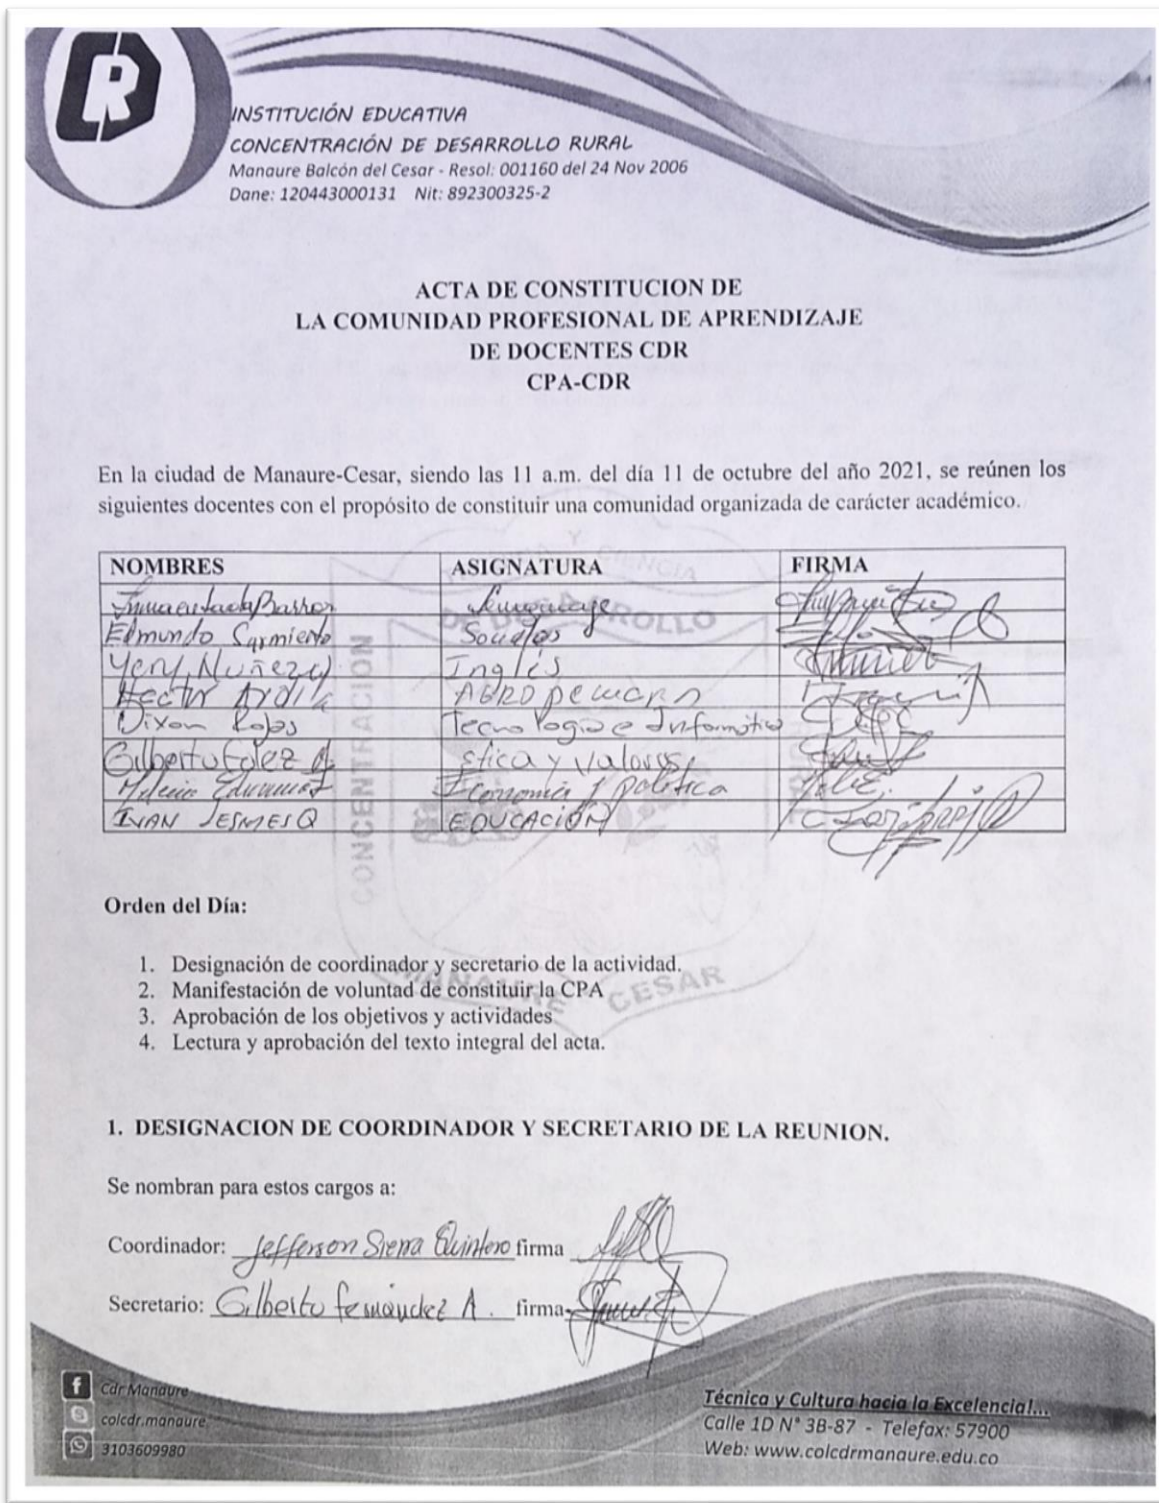 DR
INSTITUCIÓN EDUCATIVA
CONCENTRACIÓN DE DESARROLLO RURAL
Manaure Balcón del Cesar - Resol: 001160 del 24 Nov 2006
Dane: 120443000131 Nit: 892300325-2
ACTA DE CONSTITUCION DE
LA COMUNIDAD PROFESIONAL DE APRENDIZAJE
DE DOCENTES CDR
CPA-CDR
En la ciudad de Manaure-Cesar, siendo las 11 a.m. del día 11 de octubre del año 2021, se reúnen los
siguientes docentes con el propósito de constituir una comunidad organizada de carácter académico.
NOMBRES ASIGNATURA FIRMA
Inmaculada Barros Lenguaje
Edmundo Sarmiento Sociales
Yeny Nuñez Inglés
Hector Ardila AGROPECUARIA
Dixon Rojas Tecnologia e Informática
Gilberto ética y valores
Economía y política
IVAN JESMES Q EDUCACIÓN
CONCENTRACION
DE DESARROLLO
MANAURE CESAR
Orden del Día:
1. Designación de coordinador y secretario de la actividad.
2. Manifestación de voluntad de constituir la CPA
3. Aprobación de los objetivos y actividades
4. Lectura y aprobación del texto integral del acta.
1. DESIGNACION DE COORDINADOR Y SECRETARIO DE LA REUNION.
Se nombran para estos cargos a:
Coordinador: Jefferson Sierra Quintero firma
Secretario: Gilberto Fernández A. firma
Cdr Manaure
colcdr.manaure
3103609980
Técnica y Cultura hacia la Excelencia!...
Calle 1D N° 3B-87 - Telefax: 57900
Web: www.colcdrmanaure.edu.co